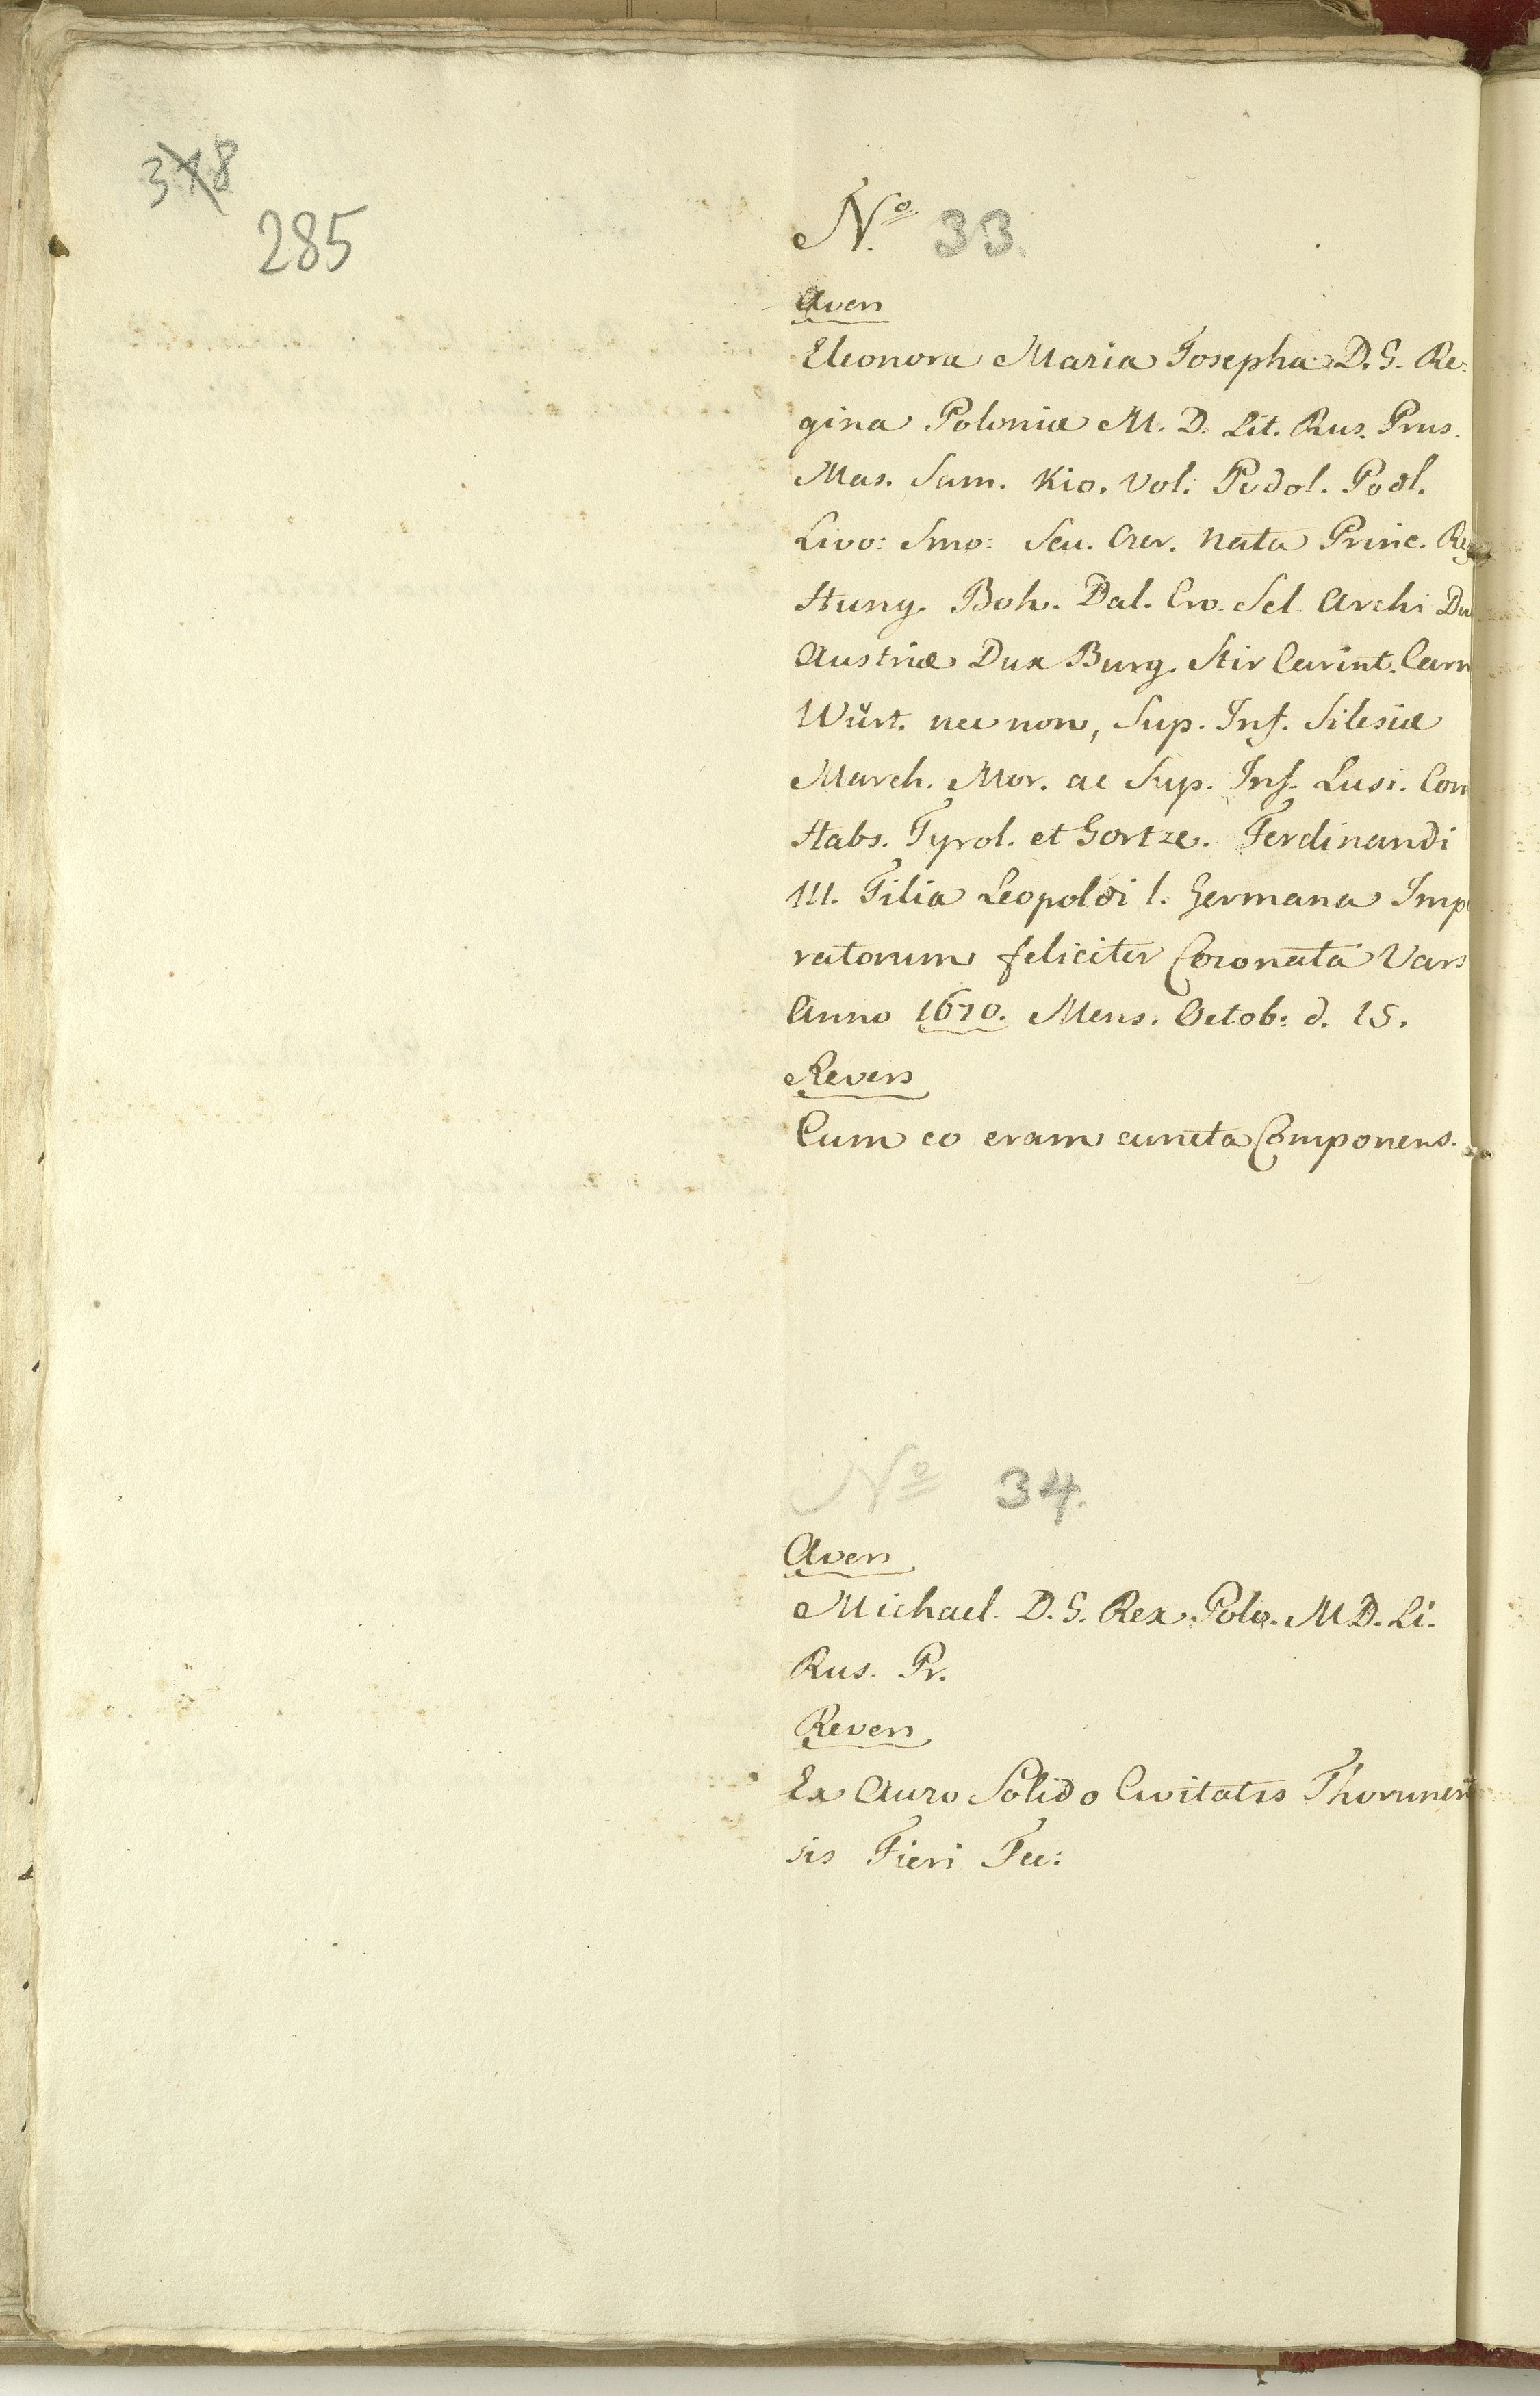 378
285
No 33.
Avers
Eleonora Maria Josepha D. G. Re-
gina Poloniæ M. D. Lit. Rus. Prus.
Mas. Sam. Kio. Vol. Podol. Podl.
Livo: Smo: Sev. Czer. nata Princ. Reg
Hung. Boh. Dal. Cro. Scl. Archi Du
Austriæ Dux Burg. Stir Carint. Carn
Würt. nec non, Sup. Inf. Silesiæ
March. Mor. ac Sup. Inf. Lusi. Com
Habs. Tyrol. et Gortze. Ferdinandi
III. Filia Leopoldi I. Germana Impe
ratorum feliciter Coronata Vars
Anno 1670. Mens. Octob: d. 15.
Revers
Cum eo eram cuncta Componens.
No 34.
Avers
Michael. D. G. Rex. Polo. M D. Li.
Rus. Pr.
Revers
Ex Auro Solido Civitatis Thorunen
sis Fieri Fec: